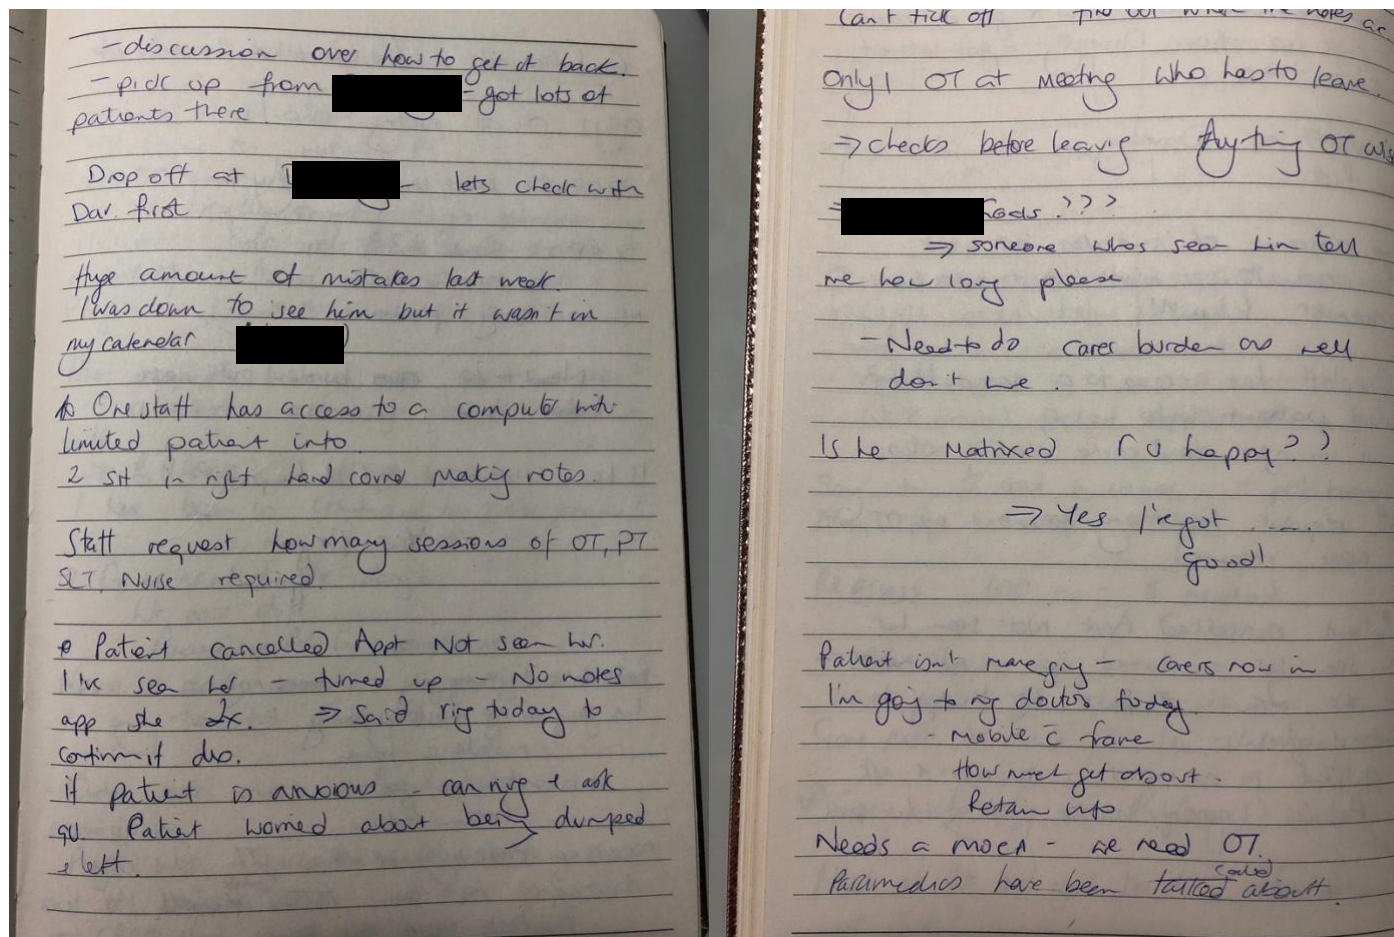 - discussion over how to get it back.
- pick up from - got lots of
patients there
Drop off at - lets check with
Dav. first
Huge amount of mistakes last week.
I was down to see him but it wasn't in
my calendar
One staff has access to a computer with
limited patient info.
2 sit in right hand corner making notes.
Staff request how many sessions of OT, PT
SLT, Nurse required.
Patient cancelled Appt Not seen her.
I've seen her - turned up - No notes
app she 2x. ⇒ Said ring today to
confirm if dso.
if patient is anxious - can ring & ask
qu. Patient worried about being dumped
& left.
Can't tick off find out where the notes are
Only 1 OT at meeting who has to leave.
⇒ checks before leaving Anything OT wise
⇒ Gads ???
⇒ someone whos seen him tell
me how long please
- Need to do carers burden as well
don't we.
Is he Matrixed r u happy??
⇒ Yes I've got ....
good!
Patient isn't managing - carers now in
I'm going to ring doctor today.
- Mobile c̄ frame
How much get about.
Retain info
Needs a MOCA - we need OT.
Paramedics have been talked (called) about.